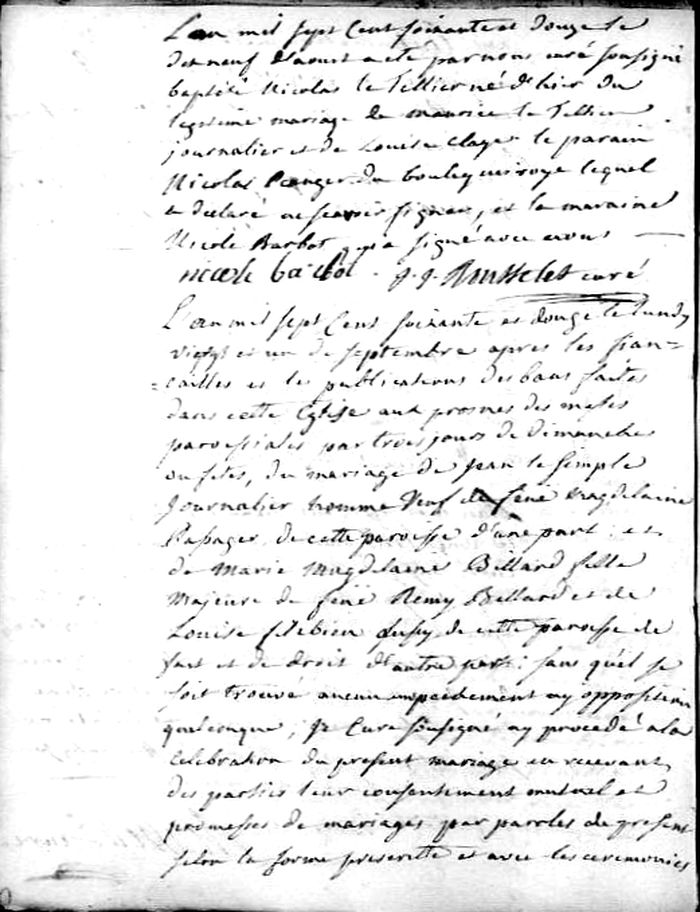 L'an mil sept Cent soixante et douze le
dixneuf d'aoust a eté par nous curé sousigné
baptisé Nicolas le Tellier né d'hier du
legitime mariage de maurice le Tellier
journalier et de Louise Claye le parain
Nicolas du lequel
a declaré ne scavoir signer, et la maraine
Nicole Barbot qui a signé avec nous
nicole barbot J. J. curé
L'an mil sept Cent soixante et douze le lundy
vingt et un de septembre apres les fian=
=cailles et les publications des bans faites
dans cette Eglise aux prosnes des messes
paroessiales par trois jours de Dimanches
ou fetes, du mariage de jean le simple
Journalier homme Veuf de feue magdelaine
Passager de cette paroisse d'une part et
de Marie magdelaine Billard fille
Majeure de feue Remy Billard et de
Louise de cette paroisse de
fait et de droit d'autre part; sans qu'il se
soit trouvé aucun impeedement ny opposition
quelconque, je Cure sousigné ay procedé a la
Celebration du present mariage en recevant
des parties leur consentement mutuel et
promesses de mariages par paroles de present
selon la forme prescritte et avec les ceremonies